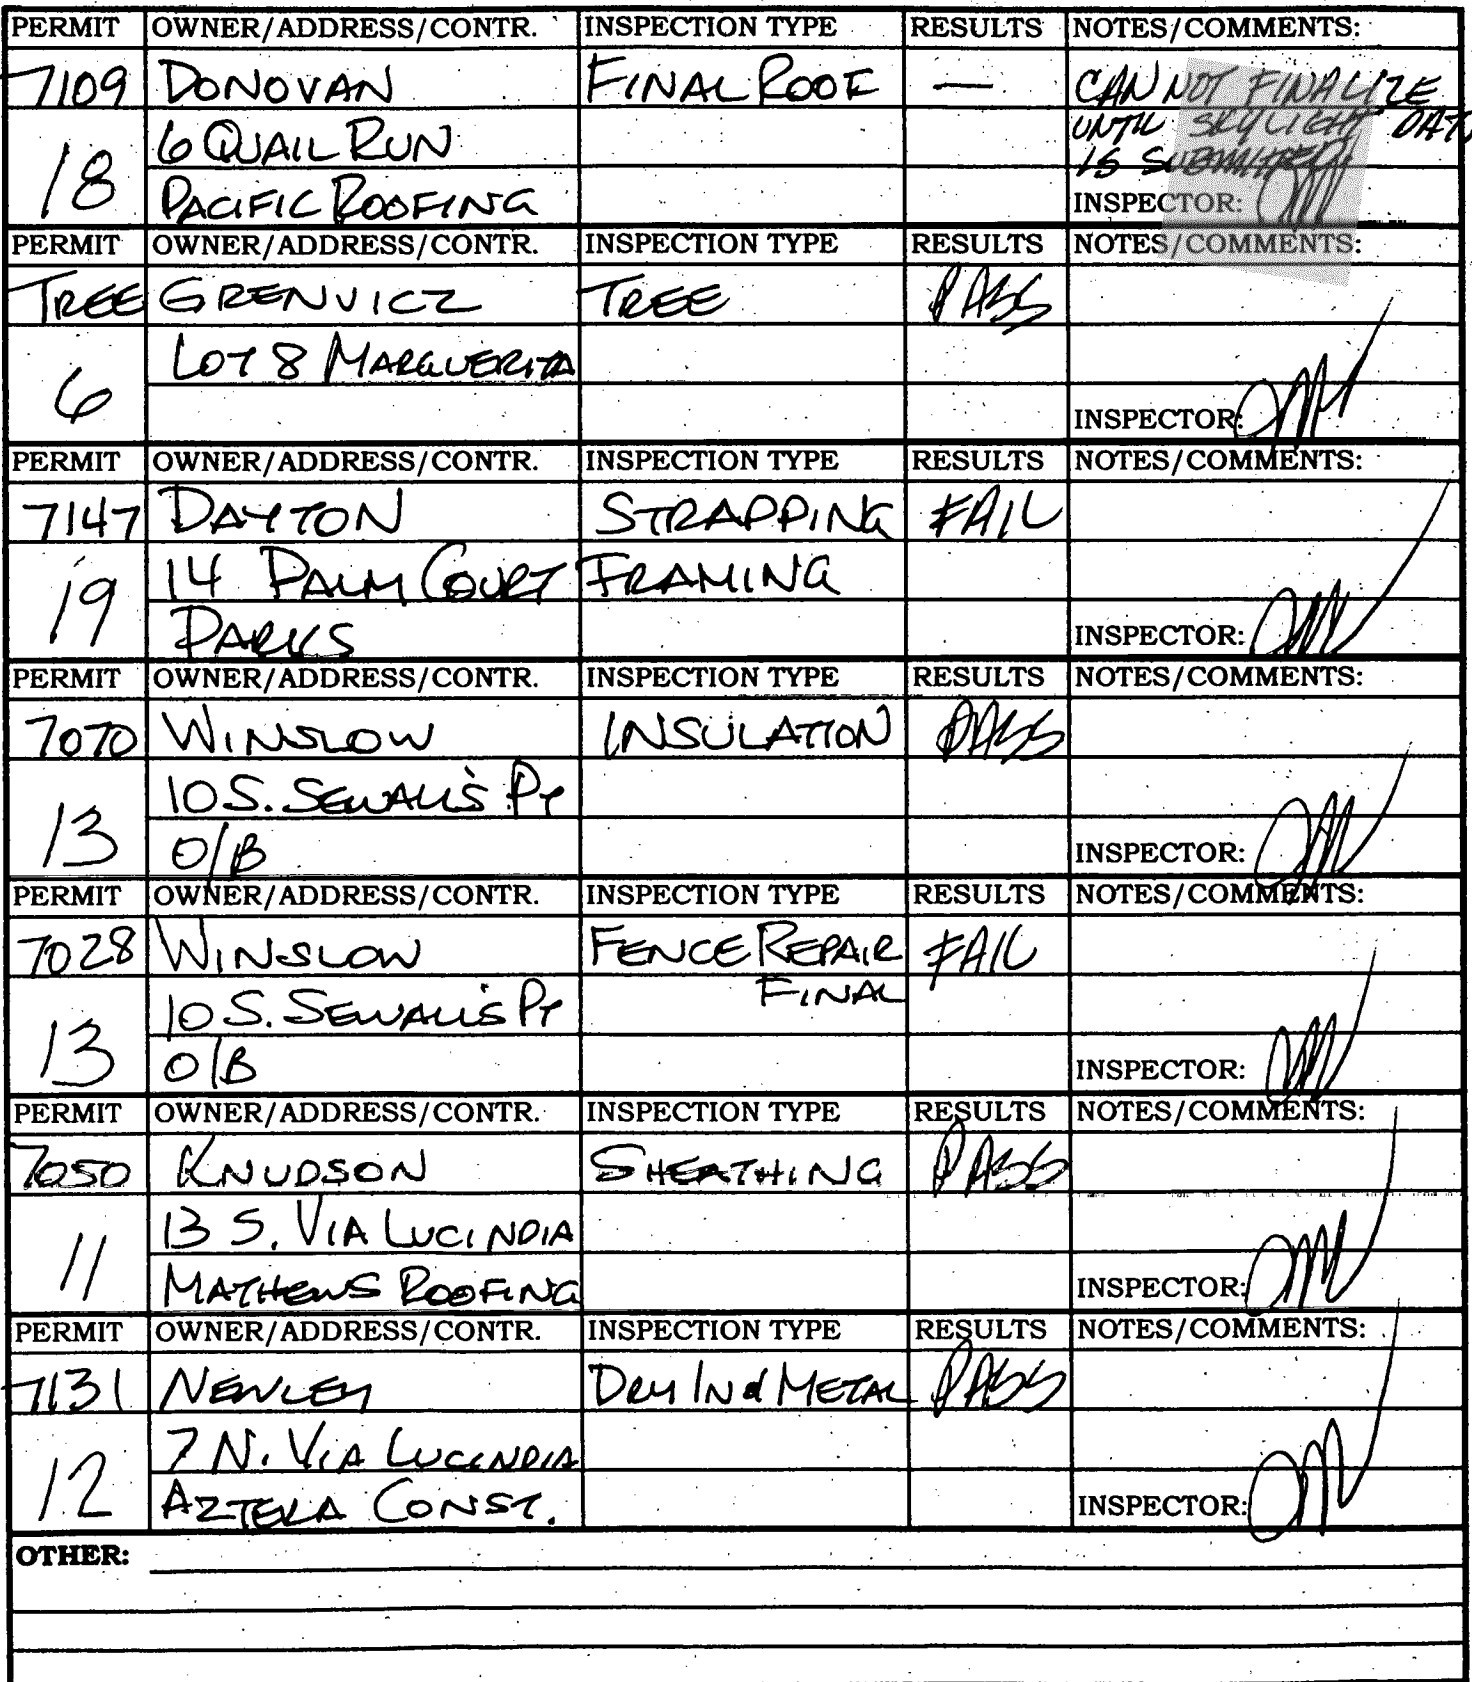 PERMIT OWNER/ADDRESS/CONTR. INSPECTION TYPE RESULTS NOTES/COMMENTS:
7109 DONOVAN FINAL ROOF — CAN NOT FINALIZE
6 QUAIL RUN UNTIL SKYLIGHT DATA
18 IS SUBMITTED
PACIFIC ROOFING INSPECTOR:
PERMIT OWNER/ADDRESS/CONTR. INSPECTION TYPE RESULTS NOTES/COMMENTS:
TREE GRENVICZ TREE PASS
LOT 8 MARGUERITA
6 INSPECTOR:
PERMIT OWNER/ADDRESS/CONTR. INSPECTION TYPE RESULTS NOTES/COMMENTS:
7147 DAYTON STRAPPING FAIL
14 PALM COURT FRAMING
19 PARKS INSPECTOR:
PERMIT OWNER/ADDRESS/CONTR. INSPECTION TYPE RESULTS NOTES/COMMENTS:
7070 WINSLOW INSULATION PASS
10 S. SEWALL'S PT
13 O/B INSPECTOR:
PERMIT OWNER/ADDRESS/CONTR. INSPECTION TYPE RESULTS NOTES/COMMENTS:
7028 WINSLOW FENCE REPAIR FAIL
10 S. SEWALL'S PT FINAL
13 O/B INSPECTOR:
PERMIT OWNER/ADDRESS/CONTR. INSPECTION TYPE RESULTS NOTES/COMMENTS:
7050 KNUDSON SHEATHING PASS
13 S. VIA LUCINDIA
11 MATHEWS ROOFING INSPECTOR:
PERMIT OWNER/ADDRESS/CONTR. INSPECTION TYPE RESULTS NOTES/COMMENTS:
7131 NEWLEY DRY IN & METAL PASS
7 N. VIA LUCINDIA
12 AZTEKA CONST. INSPECTOR:
OTHER: